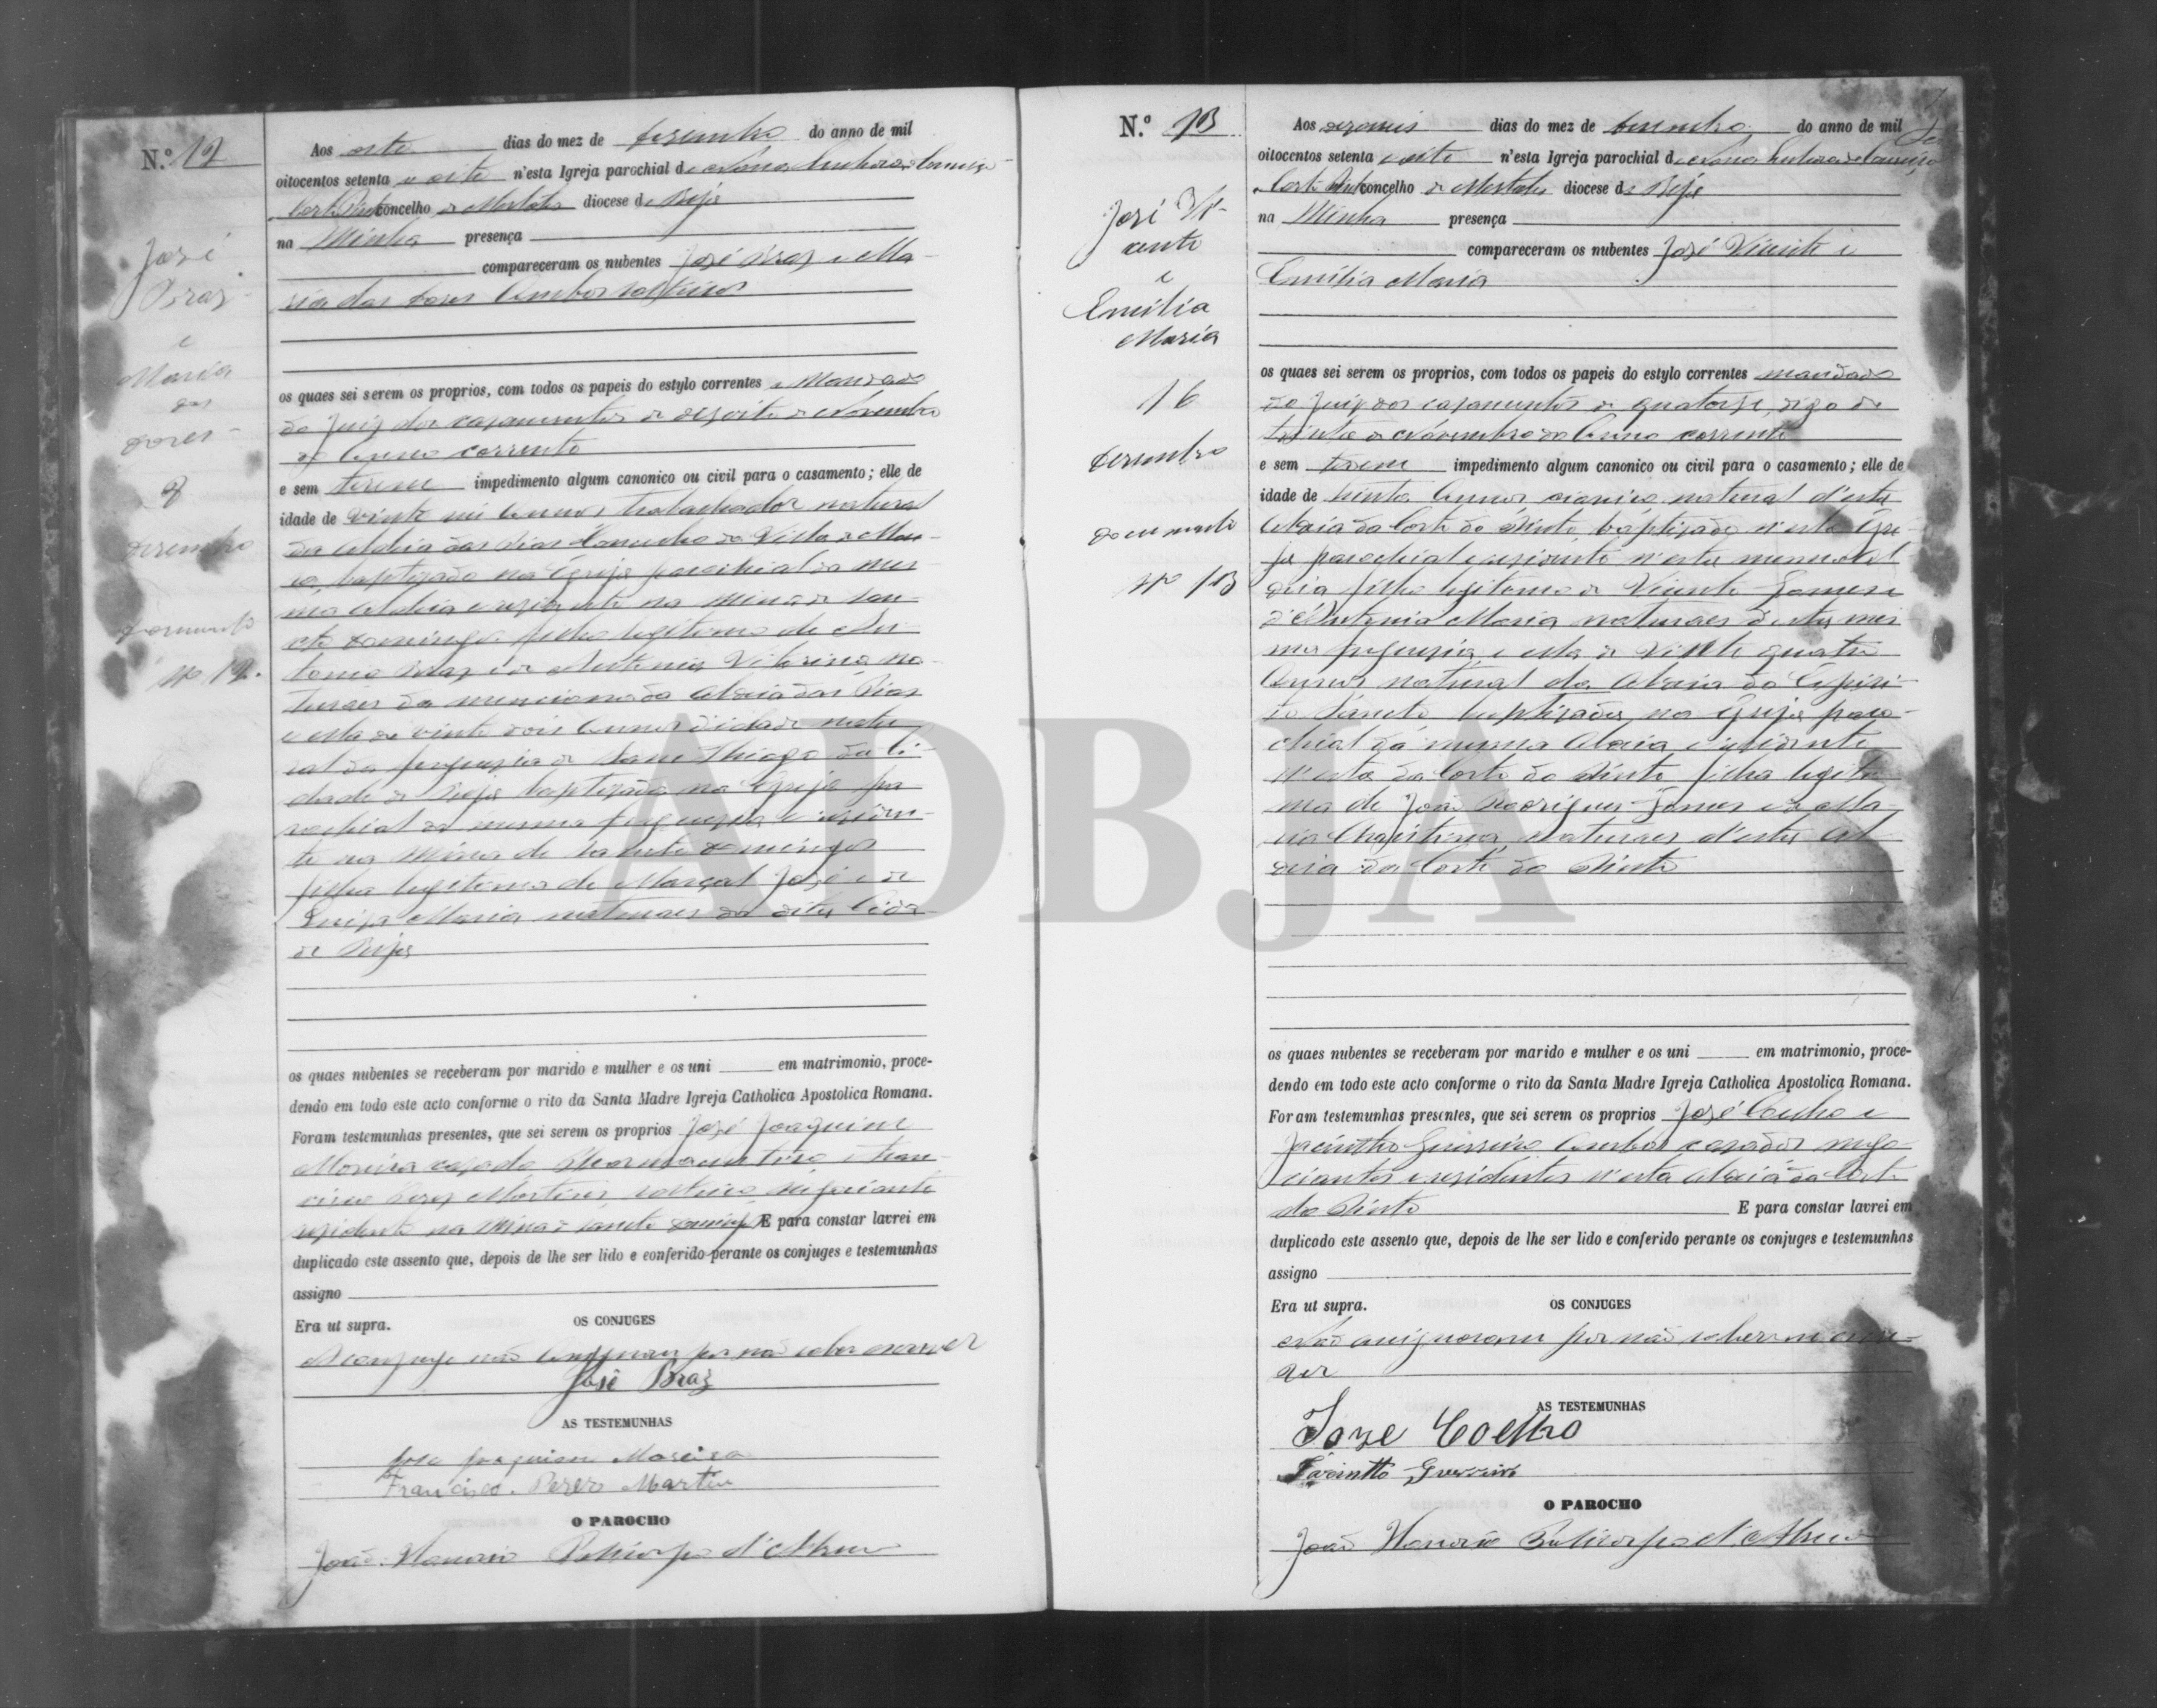 N.º 12
José
Braz
e
Maria
das
Dores
8
Dezembro
Documento
Nº 12.
Aos oito dias do mez de Dezembro do anno de mil
oitocentos setenta e oito n'esta Igreja parochial de Nossa Senhora da Conceição
Corte Pinto concelho de Mertola diocese de Beja
na Minha presença
compareceram os nubentes José Braz e Ma-
ria das Dores Ambos solteiros
os quaes sei serem os proprios, com todos os papeis do estylo correntes e Mandado
do Juiz dos casamentos de dezoito de Novembro
do Anno corrente
e sem terem impedimento algum canonico ou civil para o casamento; elle de
idade de vinte Annos trabalhador natural
da Aldeia das Concelho da Villa
baptizado na Egreja parochial da mes-
ma Aldeia e rezidente na Mina de San-
cto Domingos filho legitimo de An-
tonio Braz e de Antonia Vitorina na-
turaes da mencionada Aldeia das
e ella de vinte dois Annos d'idade natu-
ral da freguezia de Sam Thiago da Ci-
dade de Beja baptizada na Egreja pa-
rochial da mesma freguezia e reziden-
te na Mina de Sancto Domingos
filha legitima de Marçal José e de
Luiza Maria naturaes da dita Cida-
de Beja
os quaes nubentes se receberam por marido e mulher e os uni em matrimonio, proce-
dendo em todo este acto conforme o rito da Santa Madre Igreja Catholica Apostolica Romana.
Foram testemunhas presentes, que sei serem os proprios José Joaquim
Moreira cazado Pharmaceutico e Fran-
cisco Perez Martins solteiro negociante
rezidente na Mina de Sancto Domingos E para constar lavrei em
duplicado este assento que, depois de lhe ser lido e conferido perante os conjuges e testemunhas
assigno
Era ut supra.
OS CONJUGES
A conjuge não por não saber escrever
José Braz
AS TESTEMUNHAS
José Joaquim Moreira
Francisco Perez Martin
O PAROCHO
João Honorio Policarpo d'Abreu
N.º 13
José Vi-
cente
e
Emilia
Maria
16
Dezembro
Documento
Nº 13
Aos dezaseis dias do mez de Dezembro do anno de mil
oitocentos setenta e oito n'esta Igreja parochial de Nossa Senhora da Conceição
Corte Pinto concelho de Mertola diocese de Beja
na Minha presença
compareceram os nubentes José Vicente e
Emilia Maria
os quaes sei serem os proprios, com todos os papeis do estylo correntes mandado
do Juiz dos casamentos de quatorze, digo de
trinta de Novembro do Anno corrente
e sem terem impedimento algum canonico ou civil para o casamento; elle de
idade de trinta Annos natural d'esta
Aldeia da Corte do Pinto, baptizado n'esta Egre-
ja parochial e rezidente n'esta mesma Al-
deia filho legitimo de Vicente Gomes e
d'Antonia Maria naturaes desta mes-
ma freguezia e ella de Vinte quatro
Annos natural da Aldeia do Espiri-
to Sancto baptizada na Egreja paro-
chial da mesma Aldeia e rezidente
n'esta da Corte do Pinto filha legiti-
ma de João Rodrigues Gomes e de Ma-
ria naturaes d'esta Al-
deia da Corte do Pinto
os quaes nubentes se receberam por marido e mulher e os uni em matrimonio, proce-
dendo em todo este acto conforme o rito da Santa Madre Igreja Catholica Apostolica Romana.
Foram testemunhas presentes, que sei serem os proprios José Coelho e
Jacintho Guerreiro Ambos cazados nego-
ciantes e rezidentes n'esta Aldeia da Corte
do Pinto E para constar lavrei em
duplicado este assento que, depois de lhe ser lido e conferido perante os conjuges e testemunhas
assigno
Era ut supra.
OS CONJUGES
Não assignaram por não saberem escre-
ver
AS TESTEMUNHAS
Joze Coelho
Jacintto Guerreiro
O PAROCHO
João Honorio Policarpo d'Abreu
ADBJA